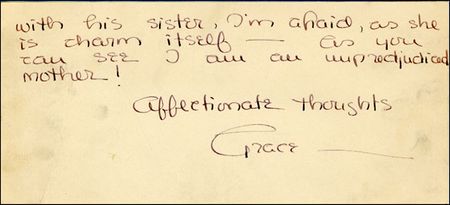 with his sister, I'm afraid, as she
is charm itself — as you
can see I am an unpredjudiced
mother!
Affectionate thoughts
Grace —